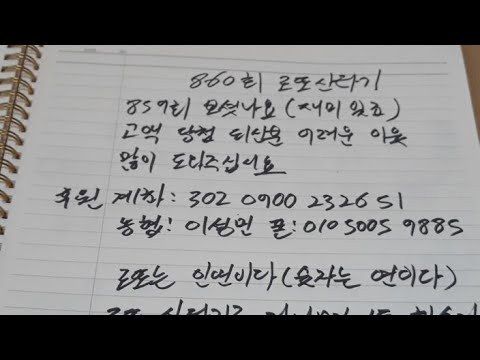 860회 로또산타기
859회 보셧나요 (재미 있죠)
고액 당첨 되신분 어려운 이웃
많이 도와주십시요
후원 계좌: 302 0900 2326 51
농협: 이성면 폰: 010 5005 9885
로또는 인연이다 (숫자는 연이다)